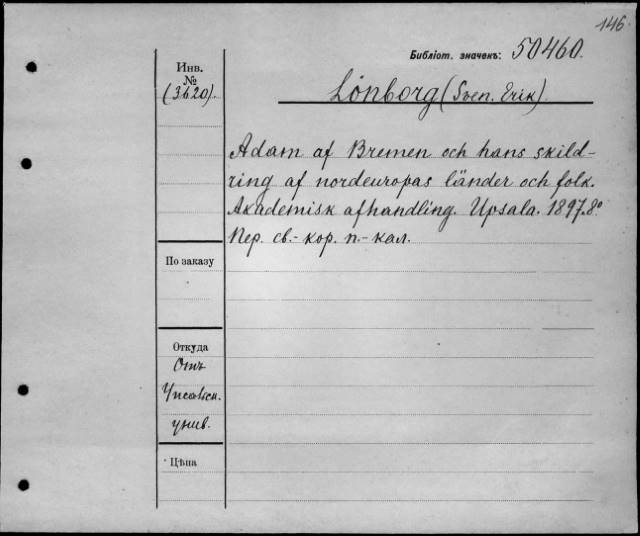 146
Библіот. значекъ: 50460.
Инв.
№
(3620).
Lönborg (Sven. Erik).
Adam af Bremen och hans skild-
ring af nordeuropas länder och folk.
Akademisk afhandling. Upsala. 1897. 8º
Пер. св.- кор. п.- кал.
По заказу
Откуда
Отъ
унив.
Цѣна